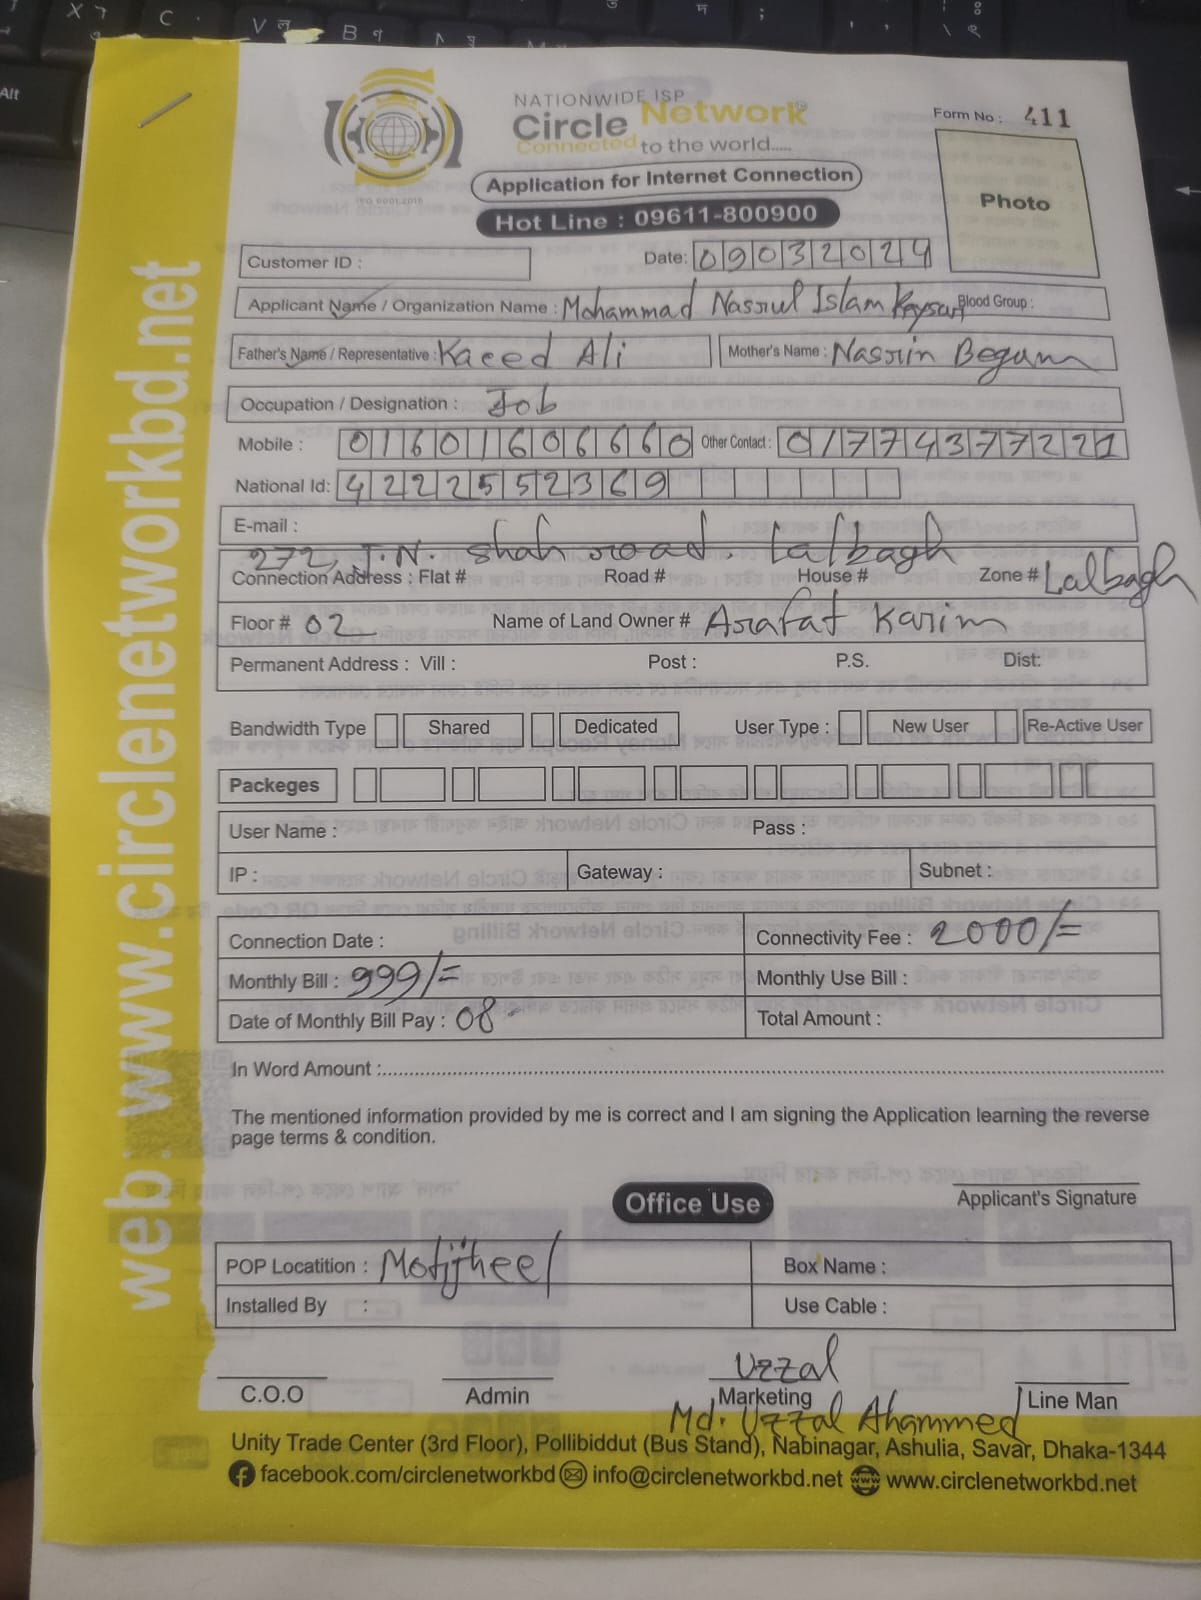 NATIONWIDE ISP
Circle Network
Connected to the world.....
Form No : 411
Application for Internet Connection
Hot Line : 09611-800900
Photo
ISO 9001:2015
Customer ID :
Date: 09032024
Applicant Name / Organization Name : Mohammad Nasrul Islam Kaysar Blood Group :
Father's Name / Representative : Kaeed Ali Mother's Name : Nasrin Begum
Occupation / Designation : Job
Mobile : 01601606660 Other Contact : 01774377221
National Id: 4222552369
E-mail :
272, J.N. shah road. Lalbagh
Connection Address : Flat # Road # House # Zone # Lalbagh
Floor # 02 Name of Land Owner # Arafat Karim
Permanent Address : Vill : Post : P.S. Dist:
Bandwidth Type Shared Dedicated User Type : New User Re-Active User
Packeges
User Name : Pass :
IP : Gateway : Subnet :
Connection Date : Connectivity Fee : 2000/=
Monthly Bill : 999/= Monthly Use Bill :
Date of Monthly Bill Pay : 08 Total Amount :
In Word Amount :
The mentioned information provided by me is correct and I am signing the Application learning the reverse
page terms & condition.
Applicant's Signature
Office Use
POP Locatition : Motijheel Box Name :
Installed By : Use Cable :
Uzzal
C.O.O Admin Marketing Line Man
Md. Uzzal Ahammed
Unity Trade Center (3rd Floor), Pollibiddut (Bus Stand), Nabinagar, Ashulia, Savar, Dhaka-1344
facebook.com/circlenetworkbd info@circlenetworkbd.net www.circlenetworkbd.net
web:www.circlenetworkbd.net